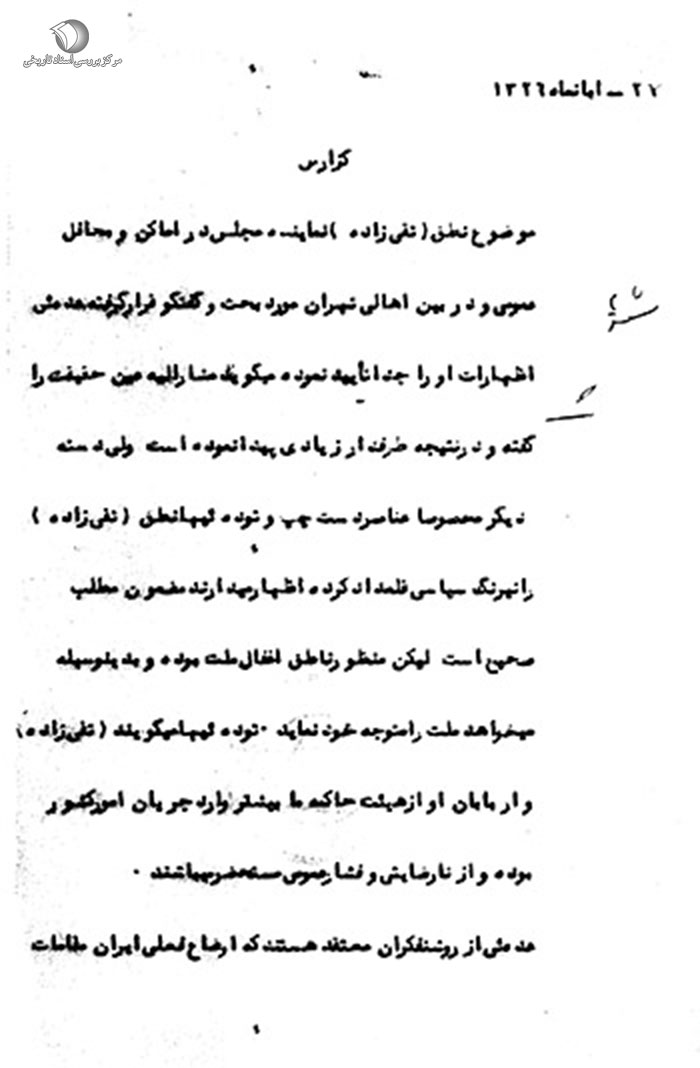 مرکز بررسی اسناد تاریخی
۲۷ – ابانماه ۱۳۲٦
گزارش
موضوع نطق ( تقی زاده ) نماینده مجلس در اماکن و محافل
عمومی و در بین اهالی تهران مورد بحث و گفتگو قرار گرفته عده ئی
اظهارات او را جدا تأیید نموده میگویند مشارالیه عین حقیقت را
گفته و در نتیجه طرفدار زیادی پیدا نموده است ولی دسته
دیگر مخصوصا عناصر دست چپ و توده ئیها نطق ( تقی زاده )
را نیرنگ سیاسی قلمداد کرده اظهار میدارند مضمون مطلب
صحیح است لیکن منظور ناطق اغفال ملت بوده و بدینوسیله
میخواهد ملت را متوجه خود نماید ۰ توده ئیها میگویند ( تقی زاده )
و اربابان او از هیئت حاکمه ما بیشتر وارد جریان امور کشور
بوده و از نارضایتی و فشار عمومی مستحضر میباشند ۰
عده ئی از روشنفکران معتقد هستند که اوضاع فعلی ایران مقامات